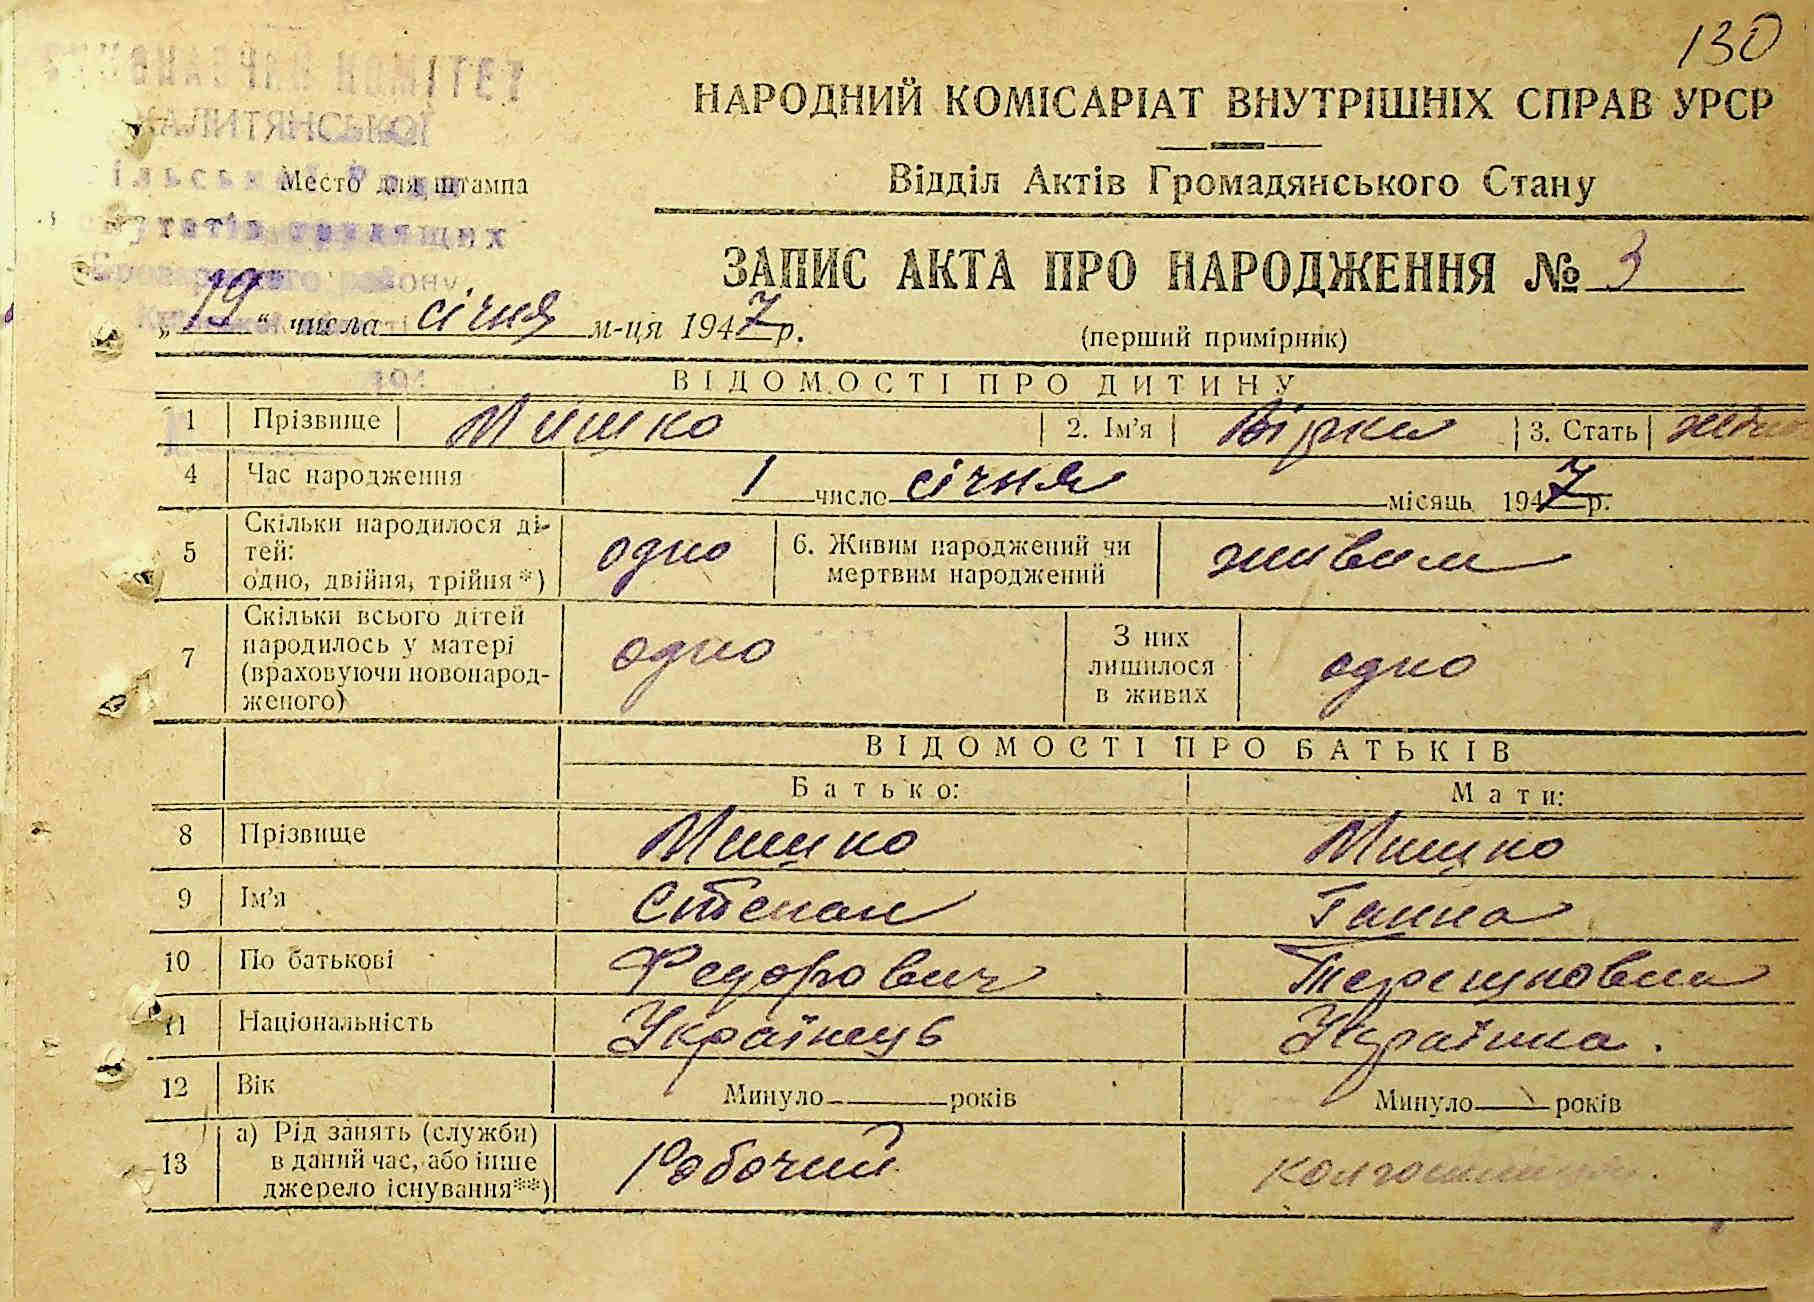 130
ВИКОНАВЧИЙ КОМІТЕТ
КАЛИТЯНСЬКОЇ
НАРОДНИЙ КОМІСАРІАТ ВНУТРІШНІХ СПРАВ УРСР
Место для штампа
Відділ Актів Громадянського Стану
трудящих
ЗАПИС АКТА ПРО НАРОДЖЕННЯ № 3
району
„19“ числа січня м-ця 1947 р.
(перший примірник)
194
ВІДОМОСТІ ПРО ДИТИНУ
1 Прізвище Мишко 2. Ім'я Вірка 3. Стать
4 Час народження 1 число січня місяць 1947 р.
5 Скільки народилося ді-
тей:
одно, двійня, трійня*) одно 6. Живим народжений чи
мертвим народжений живим
7 Скільки всього дітей
народилось у матері
(враховуючи новонарод-
женого) одно З них
лишилося
в живих одно
ВІДОМОСТІ ПРО БАТЬКІВ
Батько: Мати:
8 Прізвище Мишко Мишко
9 Ім'я Степан Ганна
10 По батькові Федорович
11 Національність Українець Українка.
12 Вік Минуло років Минуло років
13 а) Рід занять (служби)
в даний час, або інше
джерело існування**) Робочий